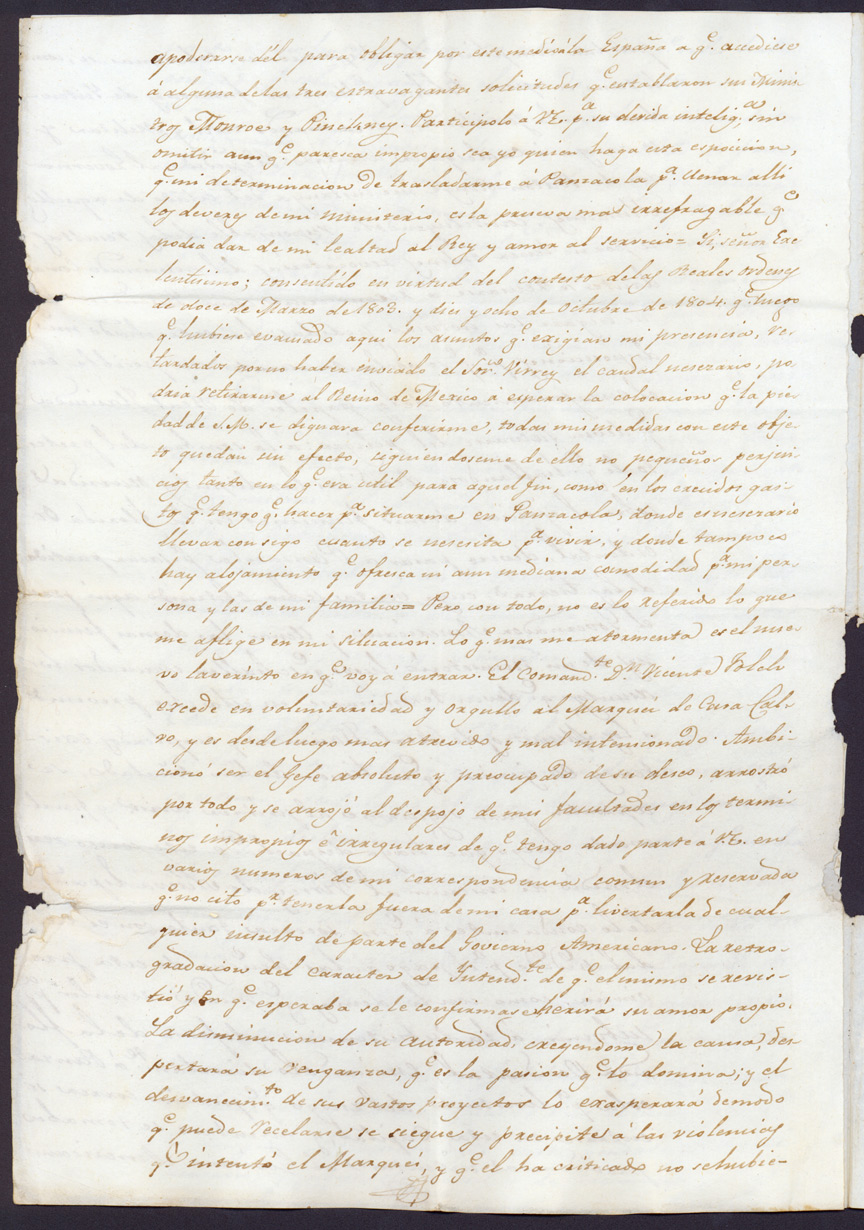 apoderarse dél para obligar por este medio á la España a q.^e accediese
á alguna de las tres estravagantes solicitudes q.^e entablaron sus Minis
tros Monroe y Pinckney. Participolo á V.E. p.^a su devida intelig.^a, sin
omitir aun q.^e paresca impropio sea yo quien haga esta esposicion,
q.^e mi determinacion de trasladarme á Panzacola p.^a llenar alli
los deveres de mi ministerio, es la prueva mas irrefragable q.^e
podia dar de mi lealtad al Rey y amor al servicio = Si, señor Exe
lentisimo; consentido en virtud del contesto de las Reales ordenes
de doce de Marzo de 1803. y dies y ocho de Octubre de 1804. q.^e luego
q.^e hubiese evacuado aqui los asuntos q.^e exigian mi presencia, re-
tardados por no haber enviado el Sor. Virrey el caudal nesesario, po-
dria retirarme al Reino de Mexico á esperar la colocacion q.^e la pie-
dad de S.M. se dignara conferirme, todas mis medidas con este obje-
to quedan sin efecto, siguiendoseme de ello no pequeños perjui-
cios tanto en lo q.^e era util para aquel fin, como en los crecidos gas-
tos q.^e tengo q.^e hacer p.^a situarme en Panzacola, donde es nesesario
llevar consigo cuanto se nescesita p.^a vivir, y donde tampoco
hay alojamiento q.^e ofresca ni aun mediana comodidad p.^a mi per-
sona y las de mi familia = Pero con todo, no es lo referido lo que
me aflige en mi situacion. Lo q.^e mas me atormenta es el nue-
vo laverinto en q.^e voy á entrar. El Comand.^te D.^n Vicente Folch
excede en voluntariedad y orgullo al Marques de Casa Cal-
vo, y es desde luego mas atrevido y mal intencionado. Ambi-
cionó ser el Gefe absoluto y preocupado de su deseo, arrostró
por todo y se arrojó al despojo de mis facultades en los termi-
nos impropios é irregulares de q.^e tengo dado parte á V.E. en
varios numeros de mi correspondencia comun y reservada
q.^e no cito p.^r tenerla fuera de mi casa p.^a livertarla de cual-
quier insulto de parte del Govierno Americano. La retro-
gradacion del caracter de Intend.^te de q.^e el mismo se revis-
tió y en q.^e esperaba se le confirmase herirá su amor propio.
La disminucion de su autoridad, creyendome la causa, des-
pertará su venganza, q.^e es la pasion q.^e lo domina; y el
desvanecim.^to de sus vastos proyectos lo exasperará de modo
q.^e puede recelarse se ciegue y precipite á las violencias
q.^e intentó el Marques, y q.^e el ha criticado no se hubie-